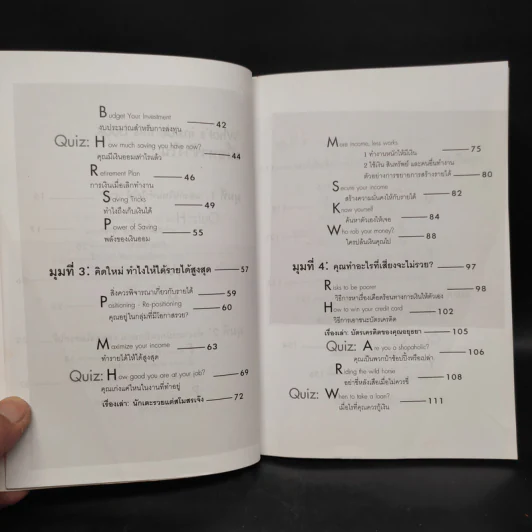 Budget Your Investment
งบประมาณสำหรับการลงทุน 42
Quiz: How much saving you have now?
คุณมีเงินออมเท่าไรแล้ว 44
Retirement Plan 46
การเงินเมื่อเลิกทำงาน
Saving Tricks 49
ทำไงถึงเก็บเงินได้
Power of Saving 55
พลังของเงินออม
มุมที่ 3: คิดใหม่ ทำไงให้ได้รายได้สูงสุด 57
สิ่งควรพิจารณาเกี่ยวกับรายได้ 59
Positioning - Re-positioning 60
คุณอยู่ในกลุ่มที่มีโอกาสรวย?
Maximize your income 63
ทำรายได้ให้ได้สูงสุด
Quiz: How good you are at your job? 69
คุณเก่งแค่ไหนในงานที่ทำอยู่
เรื่องเล่า: นักเตะรวยแต่สโมสรเจ๊ง 72
More income, less works 75
1 ทำงานหน้าให้มีเงิน
2 ใช้เงิน สินทรัพย์ และคนอื่นทำงาน
ตัวอย่างการขยายการสร้างรายได้ 80
Secure your income
สร้างความมั่นคงให้กับรายได้ 82
Know yourself 84
ค้นหาตัวเองให้เจอ
Who rob your money? 88
ใครปล้นเงินคุณไป
มุมที่ 4: คุณทำอะไรที่เสี่ยงจะไม่รวย? 97
Risks to be poorer 98
วิธีการหาเรื่องเดือดร้อนทางการเงินให้ตัวเอง
How to win your credit card 102
วิธีการเอาชนะบัตรเครดิต
เรื่องเล่า: บัตรเครดิตของคุณอยุธยา 105
Quiz: Are you a shopaholic? 106
คุณเป็นพวกบ้าช้อปปิ้งหรือเปล่า
Riding the wild horse 108
อย่าขี่หลังเสือเมื่อไม่ควรขี่
Quiz: When to take a loan? 111
เมื่อไรที่คุณควรกู้เงิน